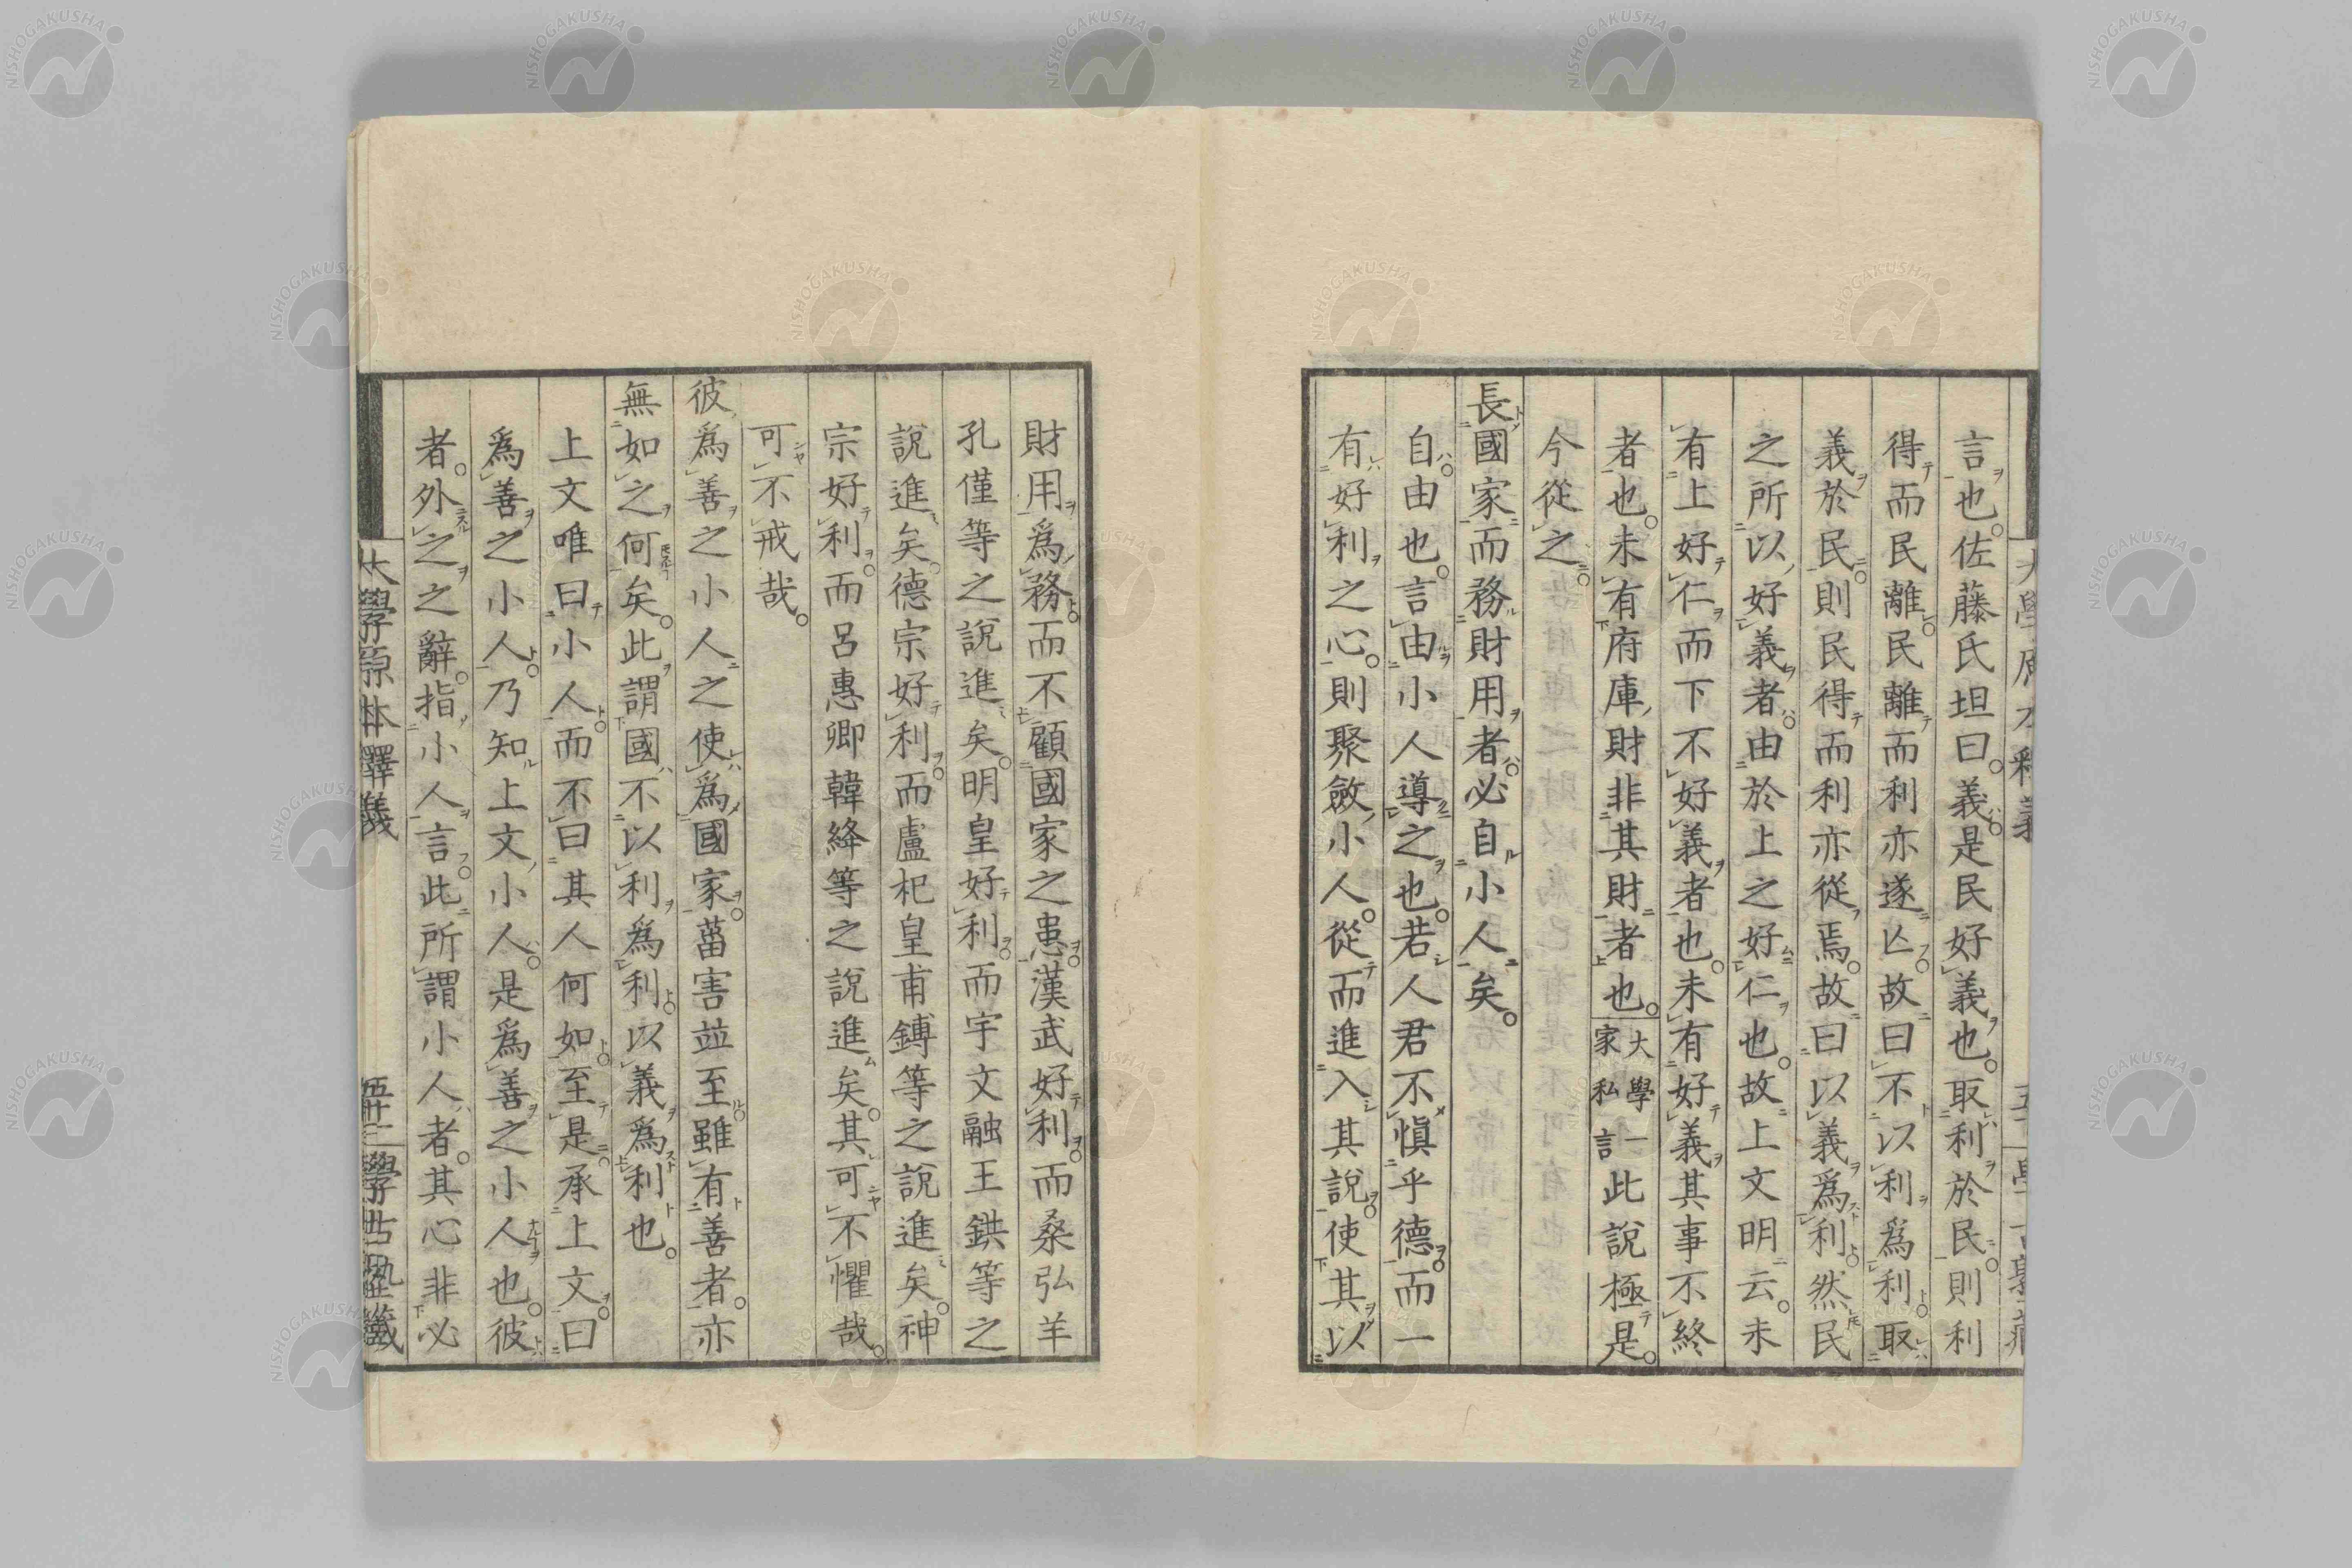 言也。佐藤氏坦曰。義是民好義也。取利於民。則利
得而民離。民離而利亦遂亾。故曰不以利爲利。取
義於民。則民得而利亦從焉。故曰以義爲利。然民
之所以好義者。由於上之好仁也。故上文明云。未
有上好仁而下不好義者也。未有好義其事不終
者也。未有府庫財非其財者也。大學一家私言此說極是。
今從之。
長國家而務財用者。必自小人矣。
自。由也。言由小人導之也。若人君不愼乎德。而一
有好利之心。則聚斂小人。從而進入其說。使其以
財用爲務。而不顧國家之患。漢武好利。而桑弘羊
孔僅等之說進矣。明皇好利。而宇文融王鉷等之
說進矣。德宗好利。而盧杞皇甫鎛等之說進矣。神
宗好利。而呂惠卿韓絳等之說進矣。其可不懼哉。
可不戒哉。
彼爲善之小人之使爲國家。菑害並至。雖有善者。亦
無如之何矣。此謂國不以利爲利。以義爲利也。
上文唯曰小人。而不曰其人何如。至是承上文。曰
爲善之小人。乃知上文小人。是爲善之小人也。彼
者。外之之辭。指小人言。此所謂小人者。其心非必
大學原本釋義
NISHOGAKUSHA